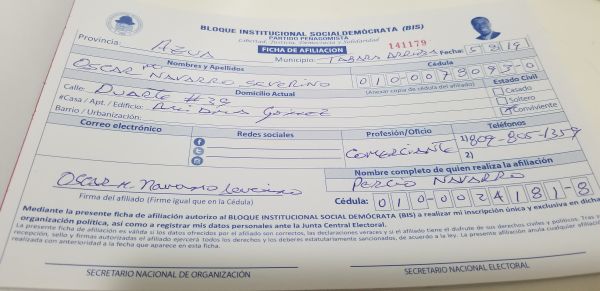 BLOQUE INSTITUCIONAL SOCIALDEMÓCRATA (BIS)
PARTIDO PEÑAGOMISTA
FICHA DE AFILIACION
141179
Provincia: AZUA Municipio: TABARA ARRIBA Fecha: 5/8/19
Nombres y Apellidos Cédula
OSCAR M NAVARRO SEVERINO
Domicilio Actual (Anexar copia de cédula del afiliado) Estado Civil
Calle: DUARTE #38 Casado
#Casa / Apt. / Edificio: Soltero
Barrio / Urbanización: Conviviente
Correo electrónico Redes sociales Profesión/Oficio Teléfonos
COMERCIANTE 1) 809-805-1359
2)
Nombre completo de quien realiza la afiliación
Oscar M. Navarro Severino PERCIO NAVARRO
Firma del afiliado (Firme igual que en la Cédula) Cédula: 010-0024181-8
Mediante la presente ficha de afiliación autorizo al BLOQUE INSTITUCIONAL SOCIAL DEMÓCRATA (BIS) a realizar mi inscripción única y exclusiva en dicha
organización política, así como a registrar mis datos personales ante la Junta Central Electoral.
La presente ficha de afiliación es válida si los datos ofrecidos por el afiliado son correctos, las declaraciones veraces y si el afiliado tiene el disfrute de sus derechos civiles y políticos. Tras
recepción, sello y firmas autorizadas el afiliado ejercerá todos los derechos y los deberes estatutariamente sancionados, de acuerdo a la ley. La presente afiliación anula cualquier afiliación
realizada con anterioridad a la fecha que aparece en esta ficha.
SECRETARIO NACIONAL DE ORGANIZACIÓN SECRETARIO NACIONAL ELECTORAL